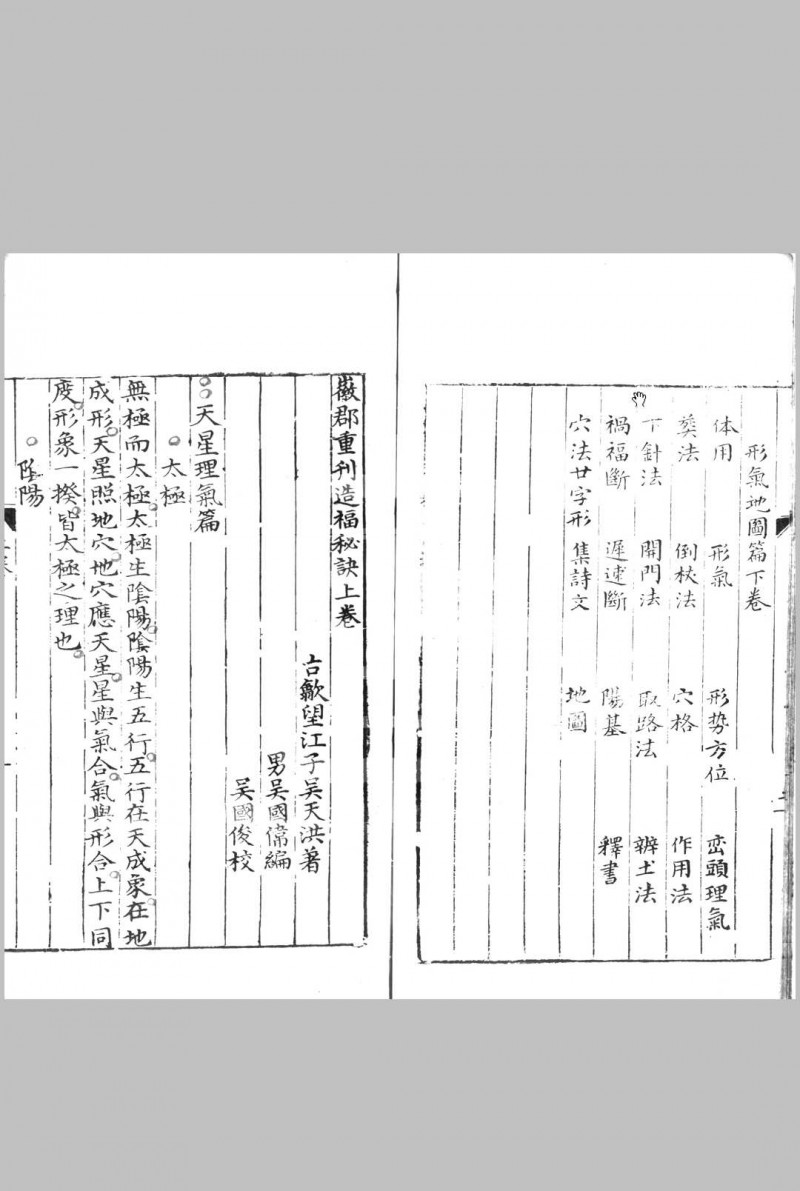 形氣地圖篇下卷
體用　形氣　形势方位　巒頭理氣
葬法　倒杖法　穴格　作用法
下針法　開門法　取路法　辨土法
禍福斷　遲速斷　陽基　釋書
穴法廿字形　集詩文　地圖
徽郡重刊造福秘訣上卷
古歙望江子吴天洪著
男吴國儒編
吴國俊校
天星理氣篇
太極
無極而太極太極生陰陽陰陽生五行五行在天成象在地
成形天星照地穴地穴應天星星與氣合氣與形合上下同
度形象一揆皆太極之理也
陰陽